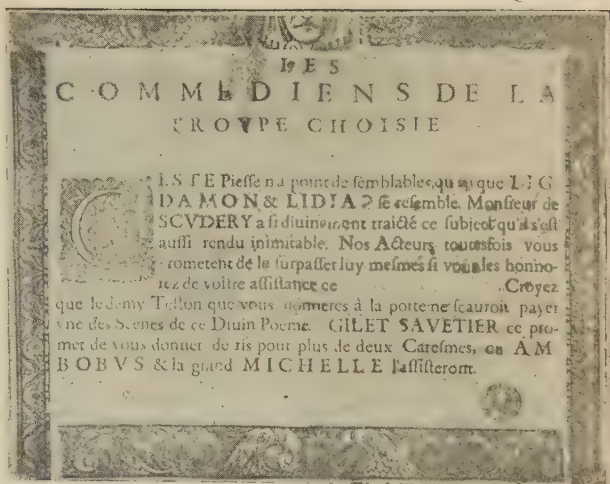 LES
COMMEDIENS DE LA
TROVPE CHOISIE
CESTE Piesse na point de semblables, qu que LIG
DAMON & LIDIAS se resemble. Monsieur de
SCVDERY a si diuinement traicté ce subject qu'il s'est
aussi rendu inimitable. Nos Acteurs toutesfois vous
prometent de le surpasser luy mesmes si vous les honno-
rez de vostre assistance ce Croyez
que le demy Teston que vous donneres à la porte ne scauroit payer
vne des Scenes de ce Diuin Poeme. GILET SAVETIER ce pro-
met de vous donner de ris pour plus de deux Caresmes, ou AM
BOBVS & la grand MICHELLE l'assisteront.